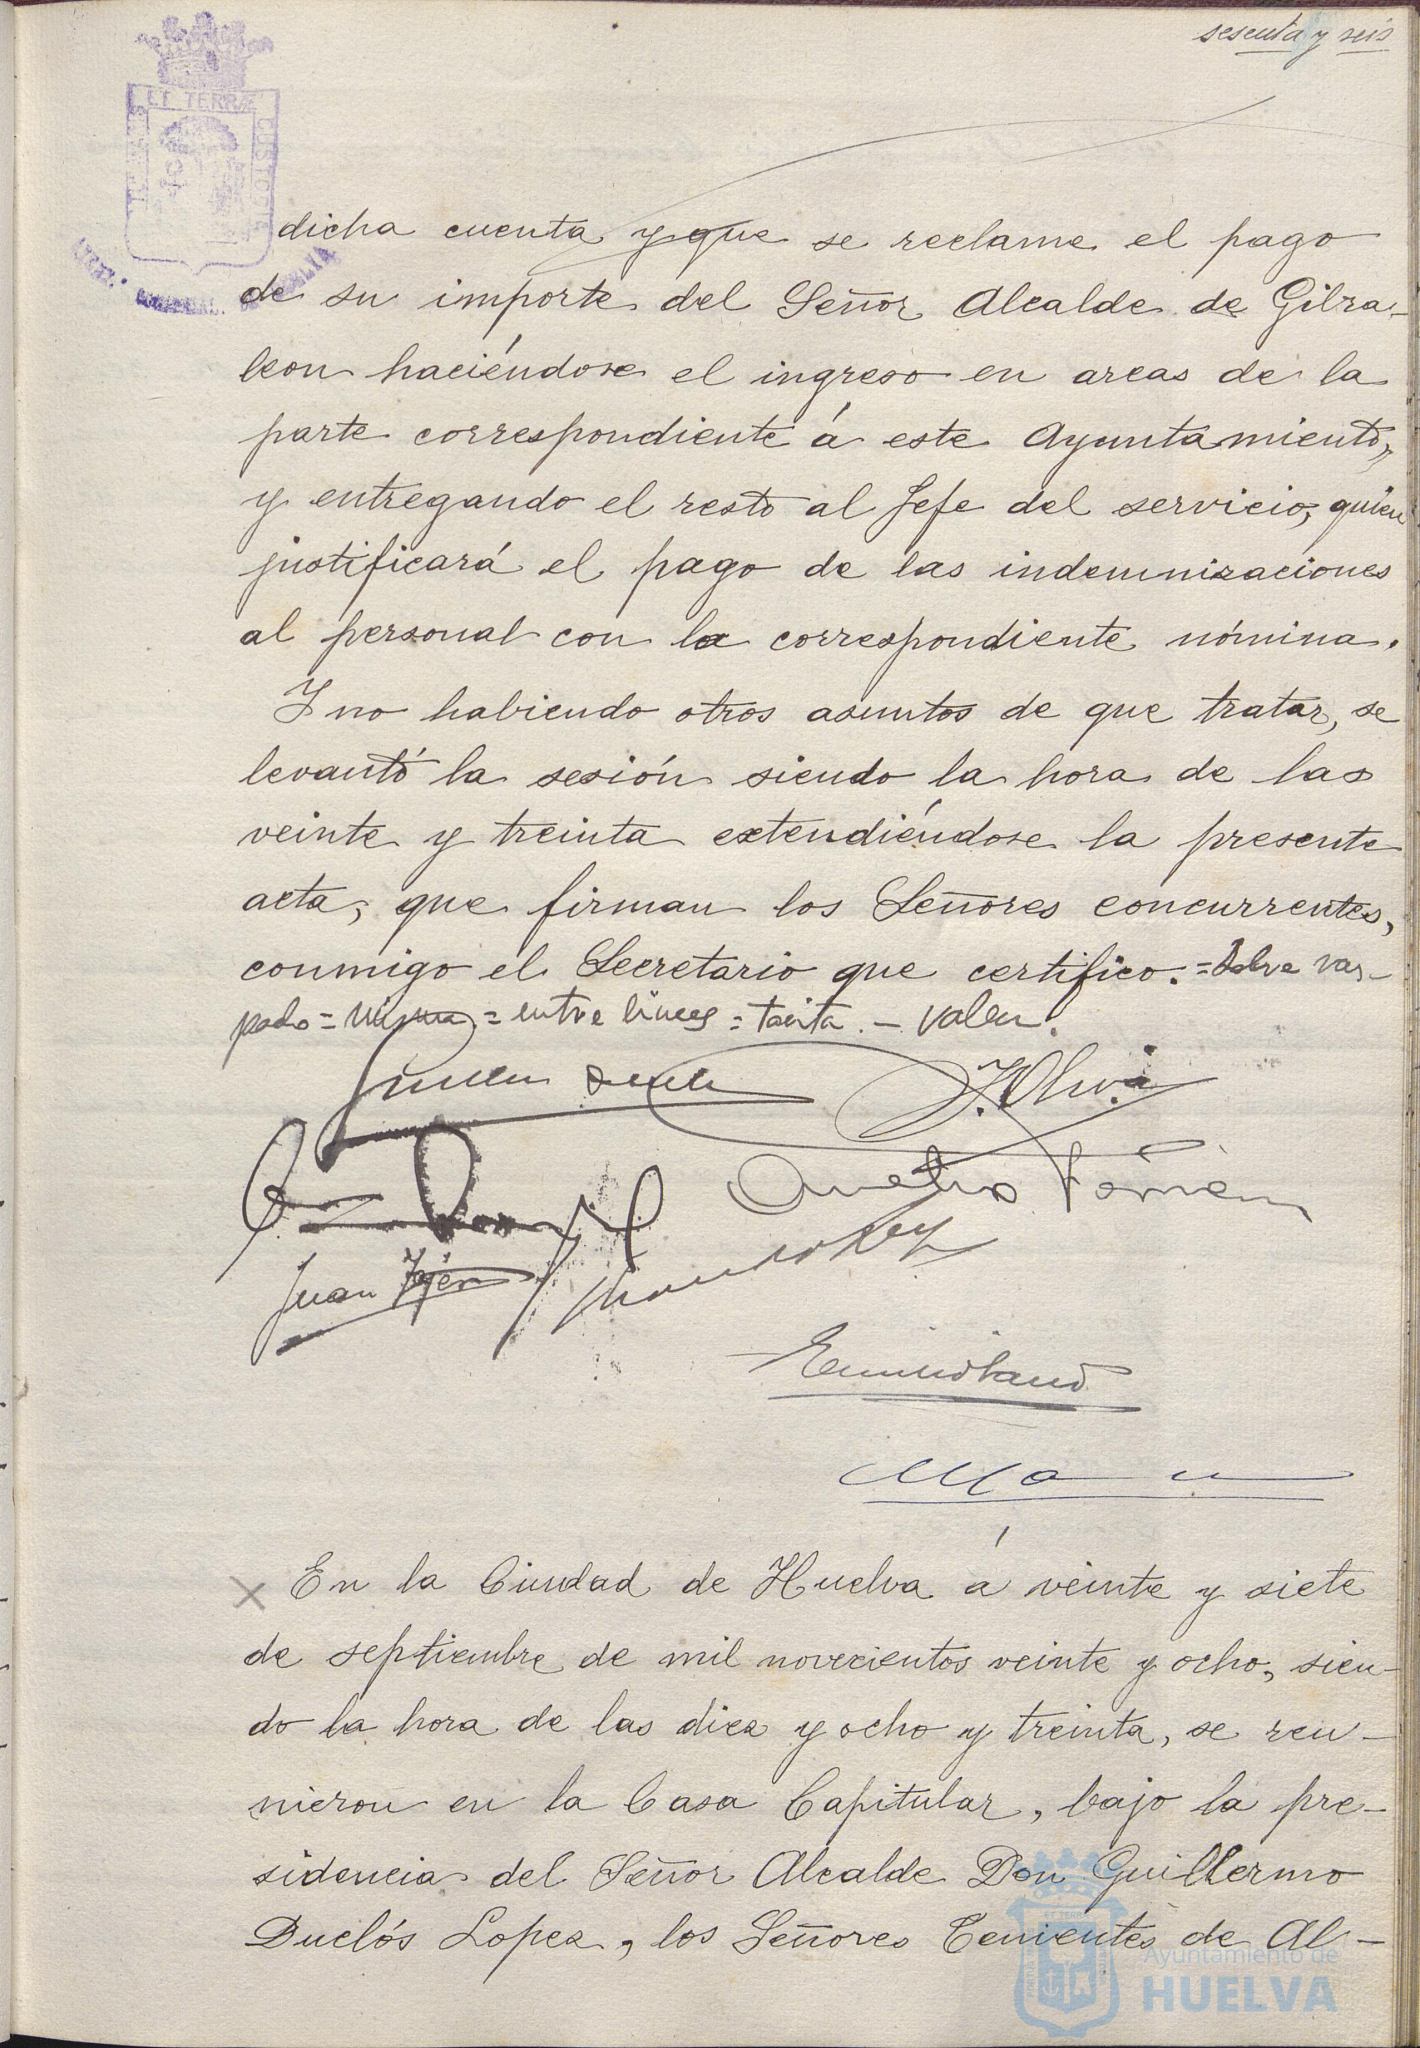 sesenta y seis
ET TERRÆ
CUSTODIA
dicha cuenta y que se reclame el pago
de su importe del Señor Alcalde de Gibra-
leon haciéndose el ingreso en arcas de la
parte correspondiente á este Ayuntamiento,
y entregando el resto al Jefe del servicio, quien
justificará el pago de las indemnizaciones
al personal con la correspondiente nómina.
Y no habiendo otros asuntos de que tratar, se
levantó la sesión siendo la hora de las
veinte y treinta extendiéndose la presente
acta, que firman los Señores concurrentes,
conmigo el Secretario que certifico. = Sobre ras-
pado = = entre lineas = tacita. - Valen.
J. Oliva
Juan
En la Ciudad de Huelva á veinte y siete
de septiembre de mil novecientos veinte y ocho, sien-
do la hora de las diez y ocho y treinta, se reu-
nieron en la Casa Capitular, bajo la pre-
sidencia del Señor Alcalde Don Guillermo
Duclós Lopez, los Señores Tenientes de Al-
Ayuntamiento de
HUELVA